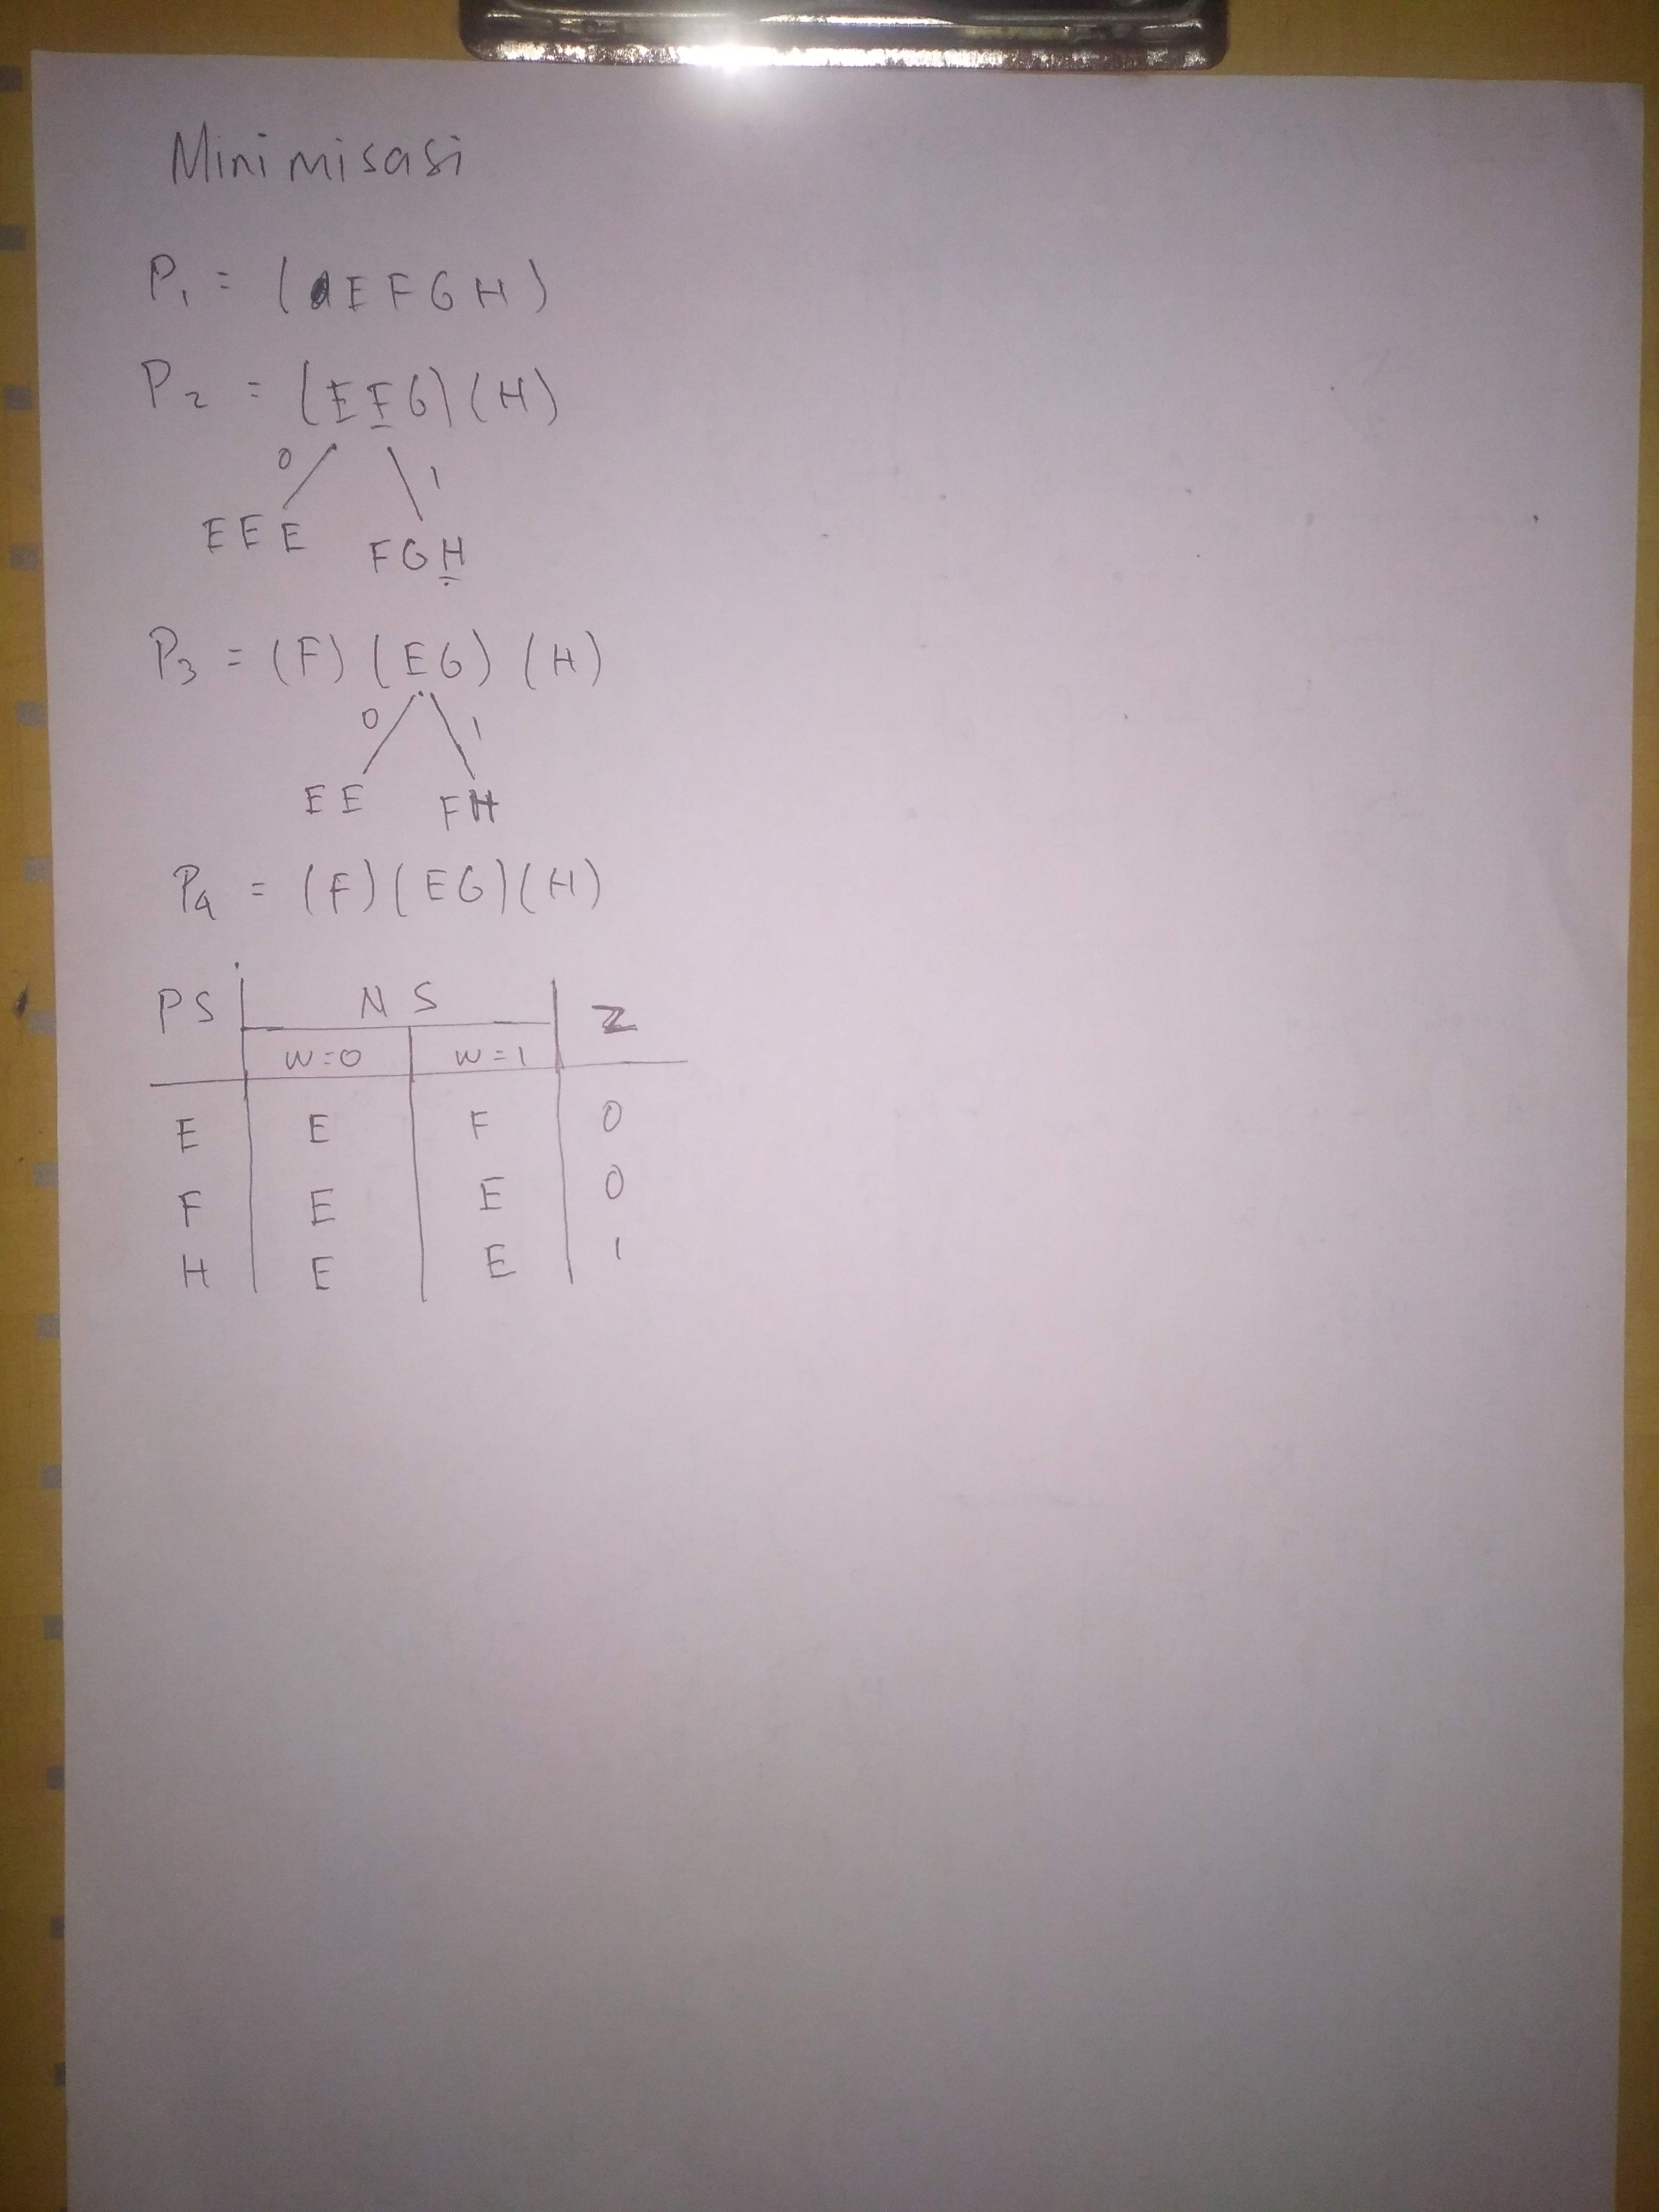 Minimisasi
P1 = (EFGH)
P2 = (EFG)(H)
0 1
EEE FGH
P3 = (F)(EG)(H)
0 1
EE FH
P4 = (F)(EG)(H)
PS NS Z
W=0 W=1
E E F 0
F E E 0
H E E 1